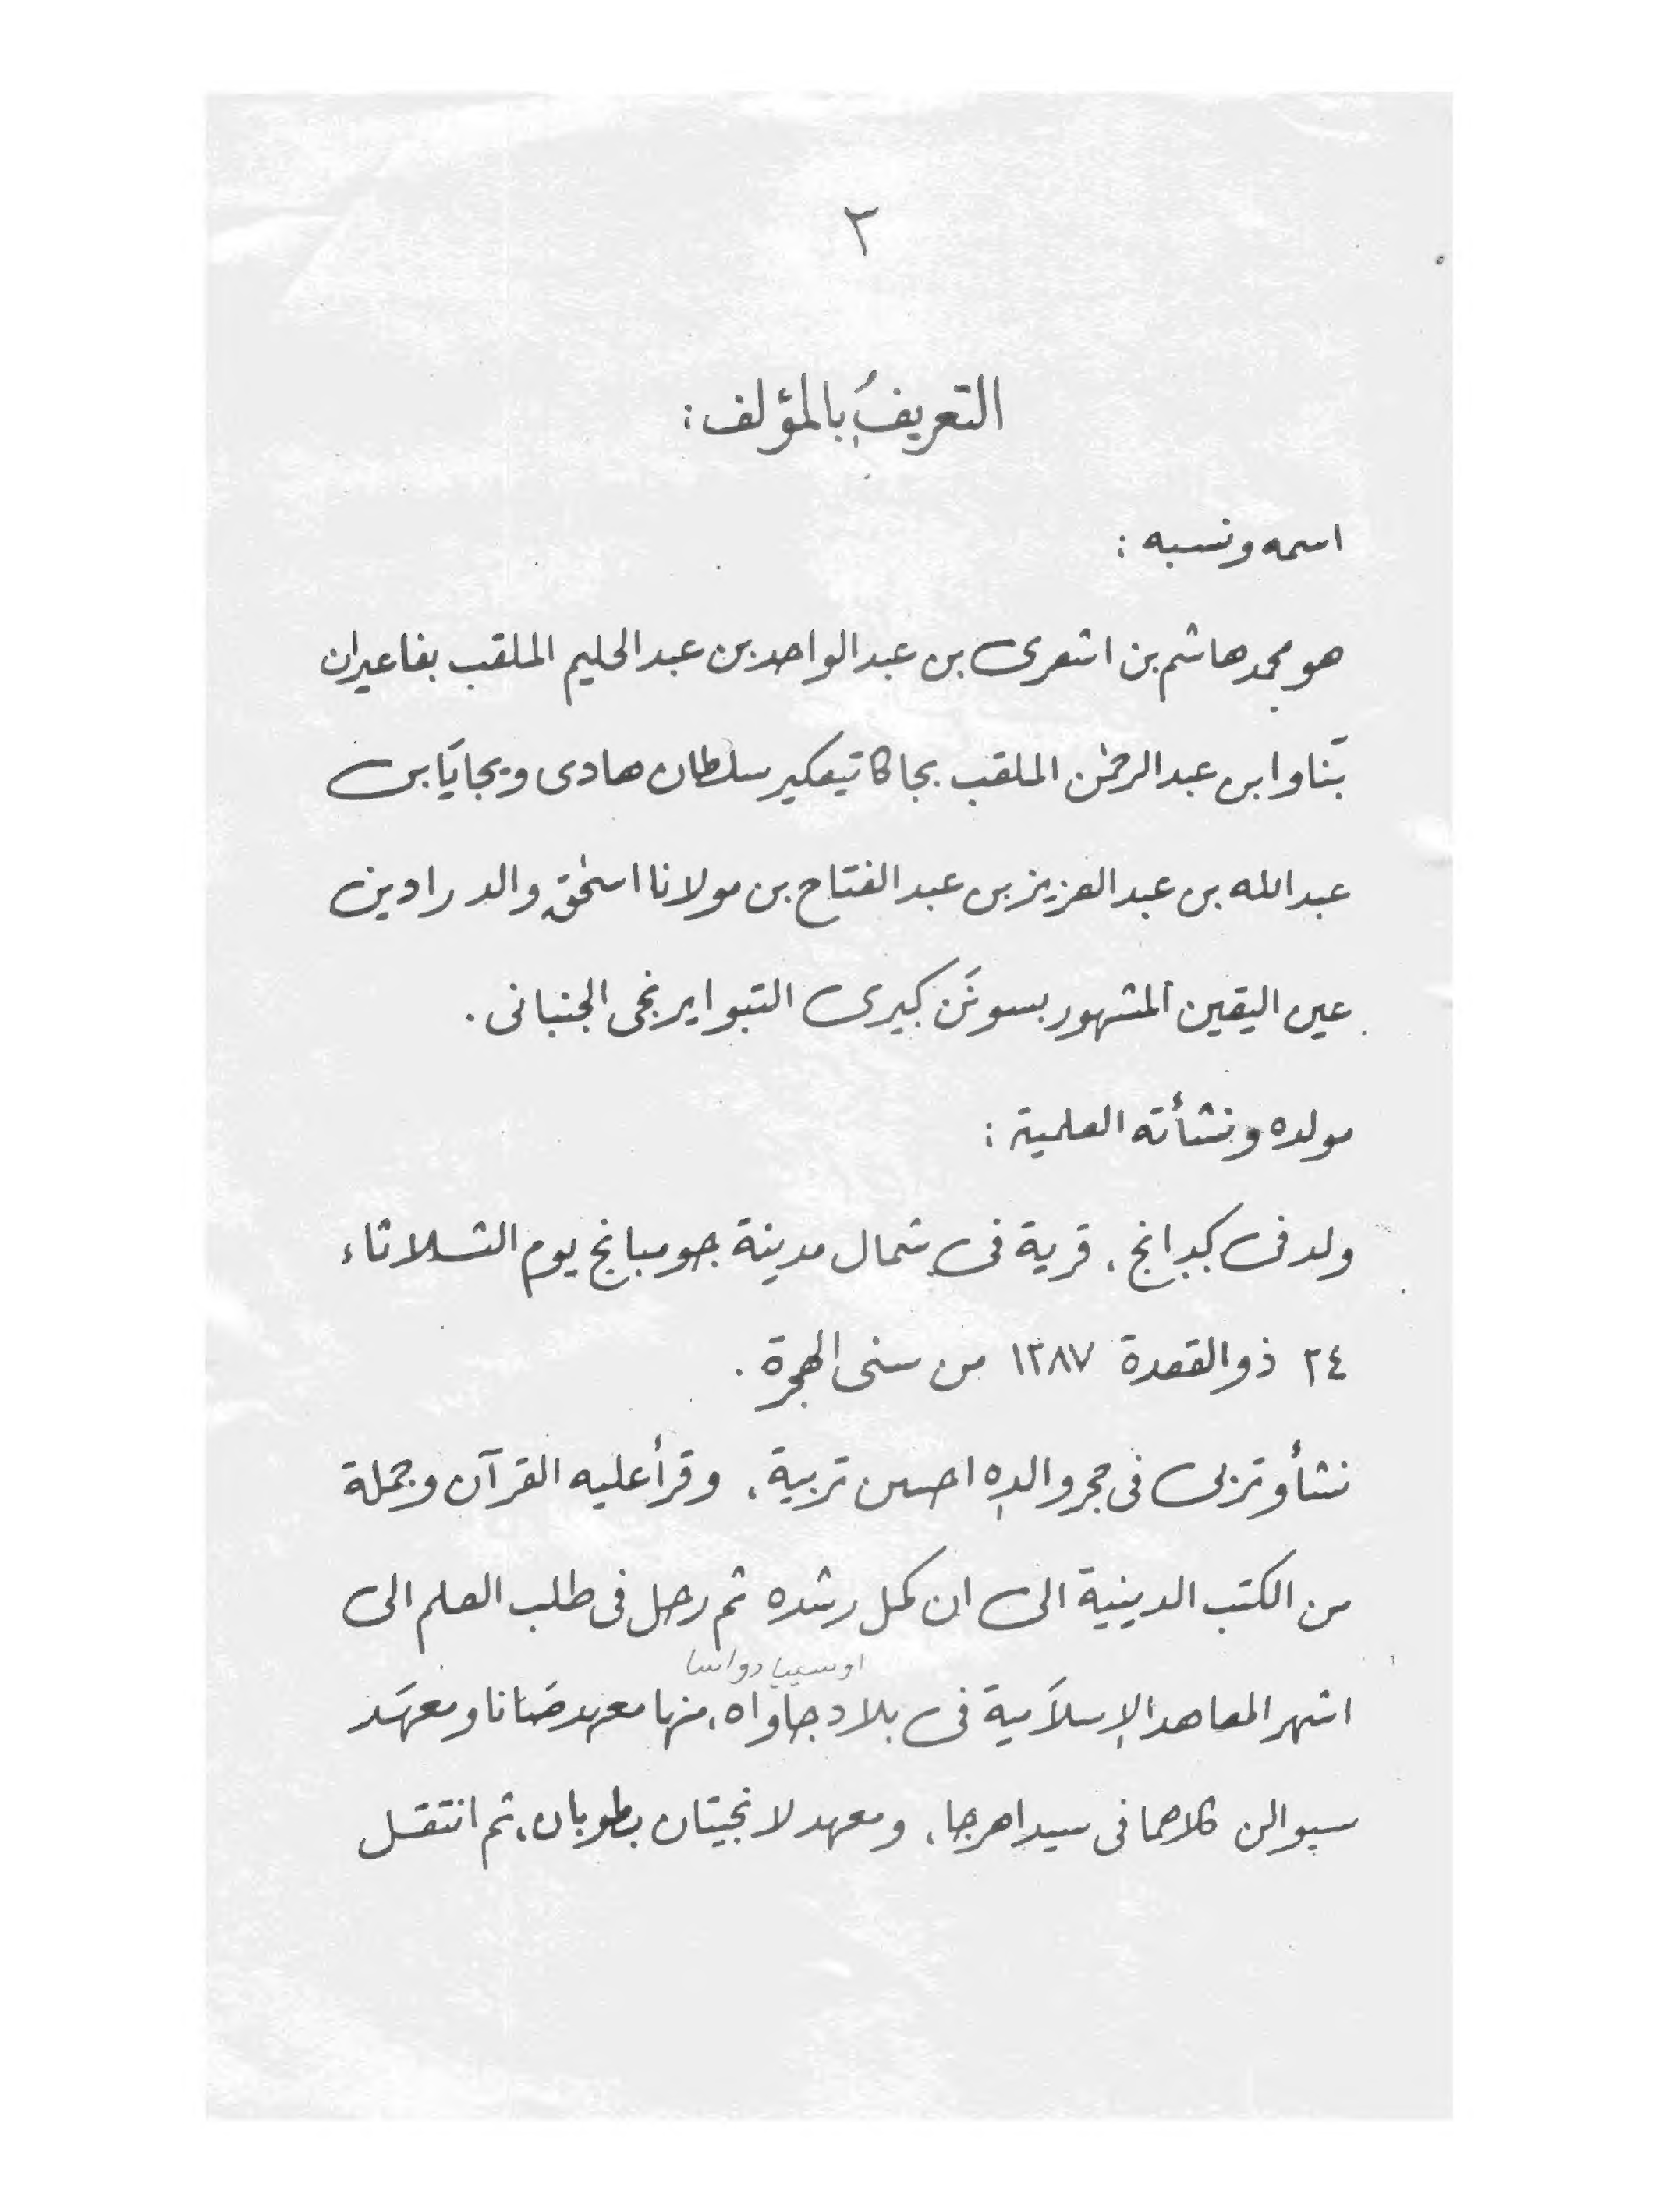 ٣
التعريفُ بِالمؤلف :
اسمه ونسبه :
هو محمد هاشم بن اشعرى بن عبد الواحد بن عبد الحليم الملقب بفاعيران
بَناوا بن عبد الرحمٰن الملقب بجاكا تيعكير سلطان هادى ويجايَا بن
عبد الله بن عبد العزيز بن عبد الفتاح بن مولانا اسحٰق والد رادين
عين اليقين المشهور بسونَن كيرى التبوايرنجى الجنبانى .
مولده ونشأته العلمية :
ولد فى كدانج ، قرية فى شمال مدينة جومبانج يوم الثلاثاء
٢٤ ذو القعدة ١٢٨٧ من سنى الهجرة .
نشأ وتربى فى حجر والدِه احسن تربية ، وقرأ عليه القرآن وجملة
من الكتب الدينية الى ان كمل رشده ثم رحل فى طلب العلم الى
اشهر المعاهد الإسلاَمية فى بلاد جاواه ، منها معهد صَانا ومعهَد
سيوالن كلاهما فى سيداهرجا ، ومعهد لانجيتان بطوبان ، ثم انتقل